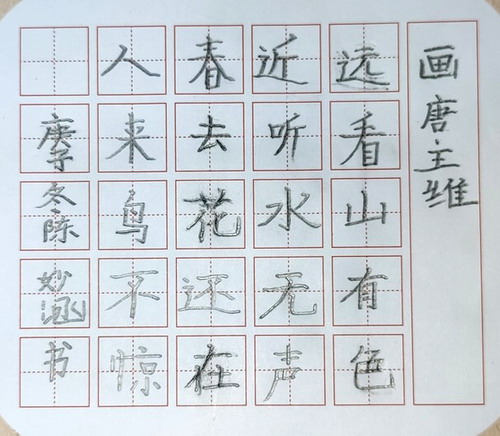 画唐王维
远看山有色
近听水无声
春去花还在
人来鸟不惊
庚子冬陈妙涵书